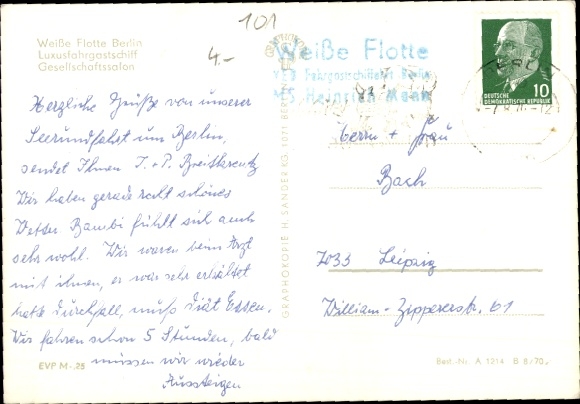 101
4.-
Weiße Flotte Berlin
Luxusfahrgastschiff
Gesellschaftssalon
Weiße Flotte
VEB Fahrgastschiffahrt Berlin
MS Heinrich Mann
10
DEUTSCHE
DEMOKRATISCHE REPUBLIK
Herzliche Grüße von unserer
Seerundfahrt um Berlin
sendet Ihnen I. + P. Breitkreutz
Wir haben gerade recht schönes
Wetter Bambi fühlt sich auch
sehr wohl. Wir waren beim Arzt
mit ihnen, er war sehr erkältet
hatte Durchfall, muß Diät Essen.
Wir fahren schon 5 Stunden, bald
müssen wir wieder
Aussteigen
GRAPHOKOPIE H. SANDER KG, 1071 BERLIN
Herrn + Frau
Bach
7033 Leipzig
William-Zippererstr. 61
EVP M -.25
Best.-Nr. A 1214 B 8/70